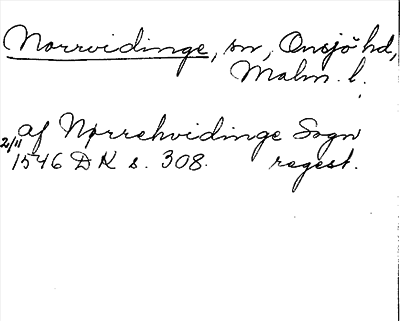 Norrvidinge, sn, Onsjö hd,
Malm. l.
af Nørrehvidinge Sogn
2/11 1546 DK s. 308. regest.